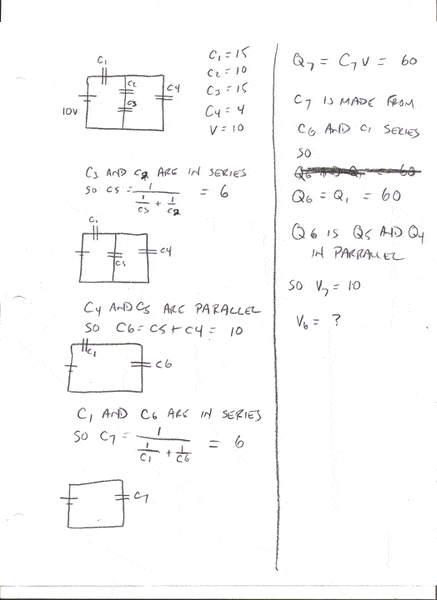 C1
C2
C3
C4
10V
C1 = 15
C2 = 10
C3 = 15
C4 = 4
V = 10
C3 AND C2 ARE IN SERIES
SO C5 = 1 / (1/C3 + 1/C2) = 6
C1
C5
C4
C4 AND C5 ARE PARALLEL
SO C6 = C5 + C4 = 10
C1
C6
C1 AND C6 ARE IN SERIES
SO C7 = 1 / (1/C1 + 1/C6) = 6
C7
Q7 = C7 V = 60
C7 IS MADE FROM
C6 AND C1 SERIES
SO
Q6 = Q1 = 60
Q6 IS Q5 AND Q4
IN PARRALLEL
SO V7 = 10
V6 = ?